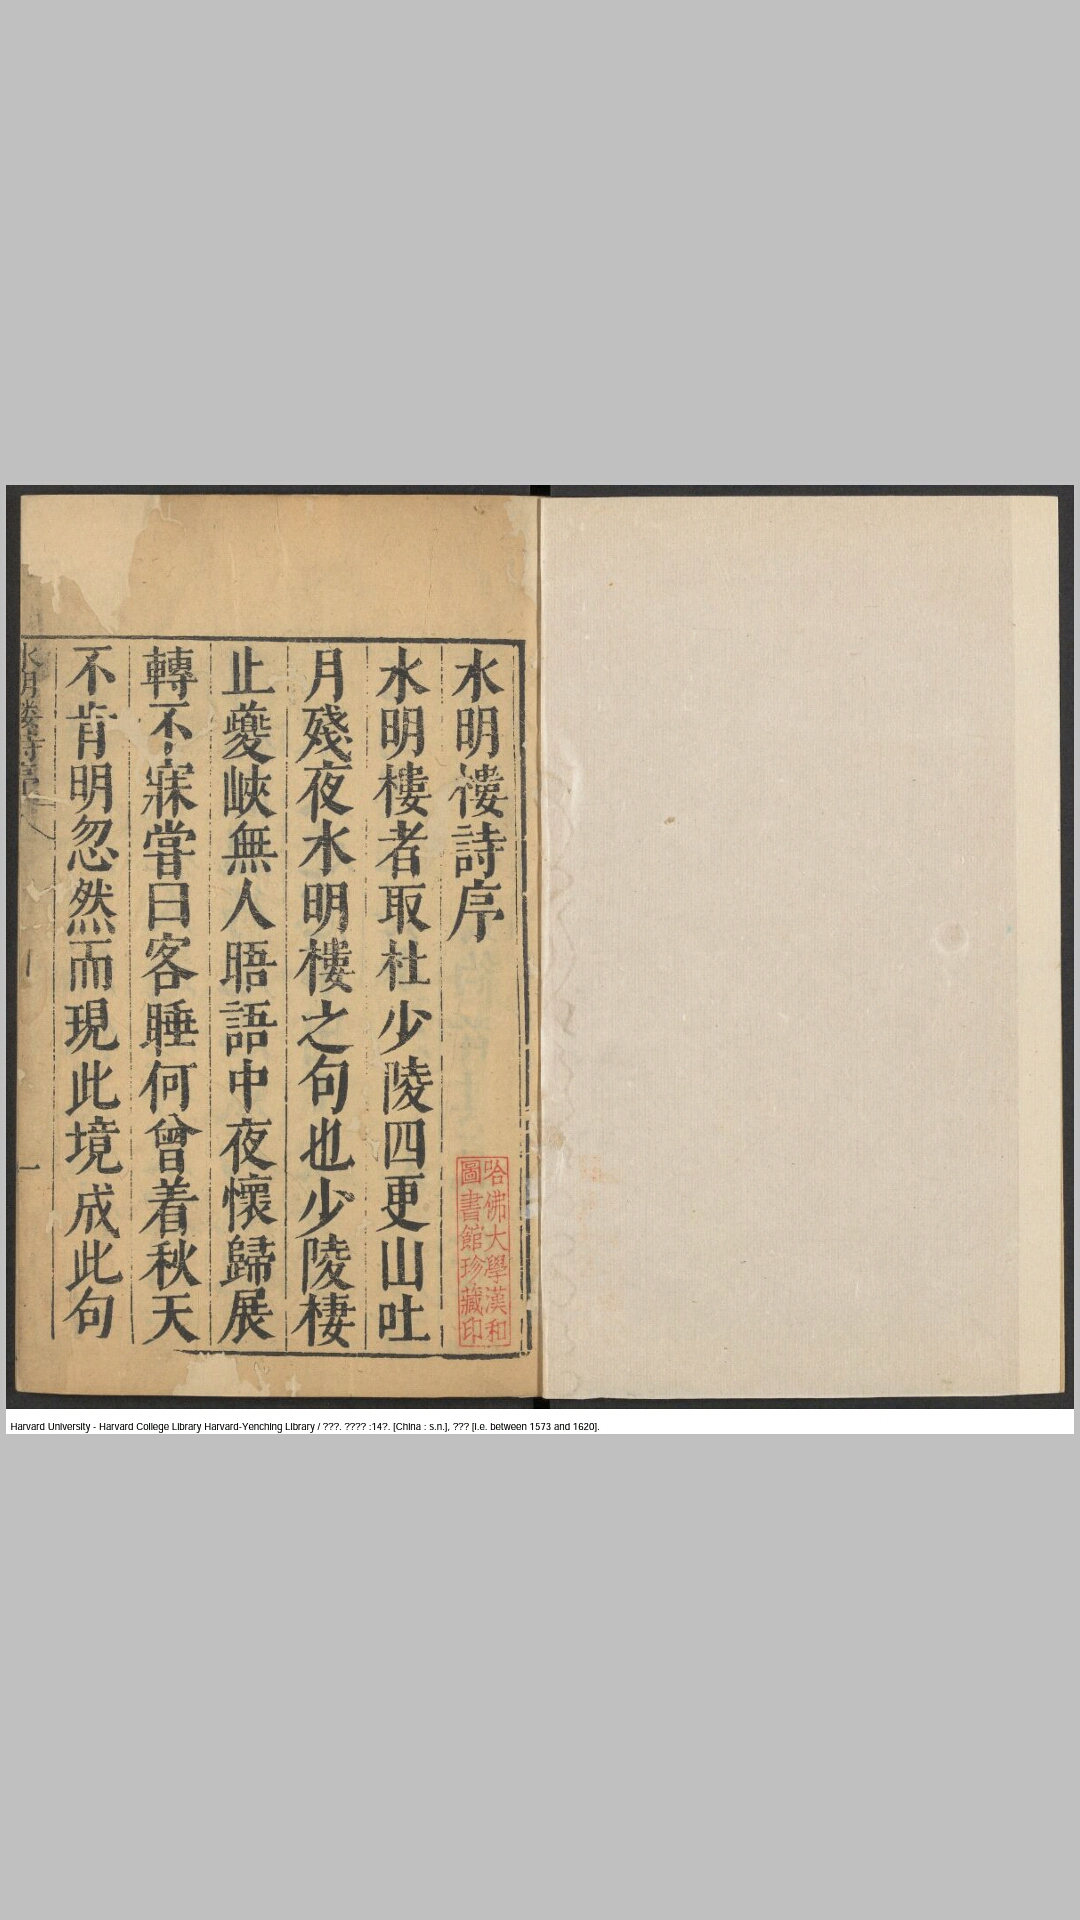 水明樓詩序
水明樓者取杜少陵四更山吐
月殘夜水明樓之句也少陵棲
止夔峽無人晤語中夜懷歸展
轉不寐嘗曰客睡何曾着秋天
不肯明忽然而現此境成此句
水明樓詩序
一
哈佛大學漢和
圖書館珍藏印
Harvard University - Harvard College Library Harvard-Yenching Library / ???. ???? :14?. [China : s.n.], ??? [i.e. between 1573 and 1620].